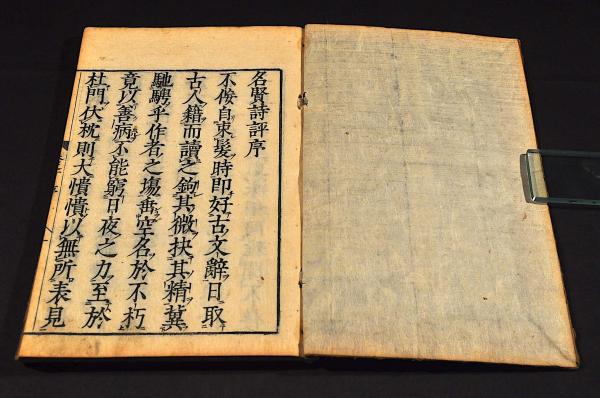 名賢詩評序
不佞自束髮時即好古文辭日取
古人籍而讀之鉤其微抉其精冀
馳騁乎作者之場垂空名於不朽
竟以善病不能窮日夜之力至於
杜門伏枕則大憒憒以無所表見